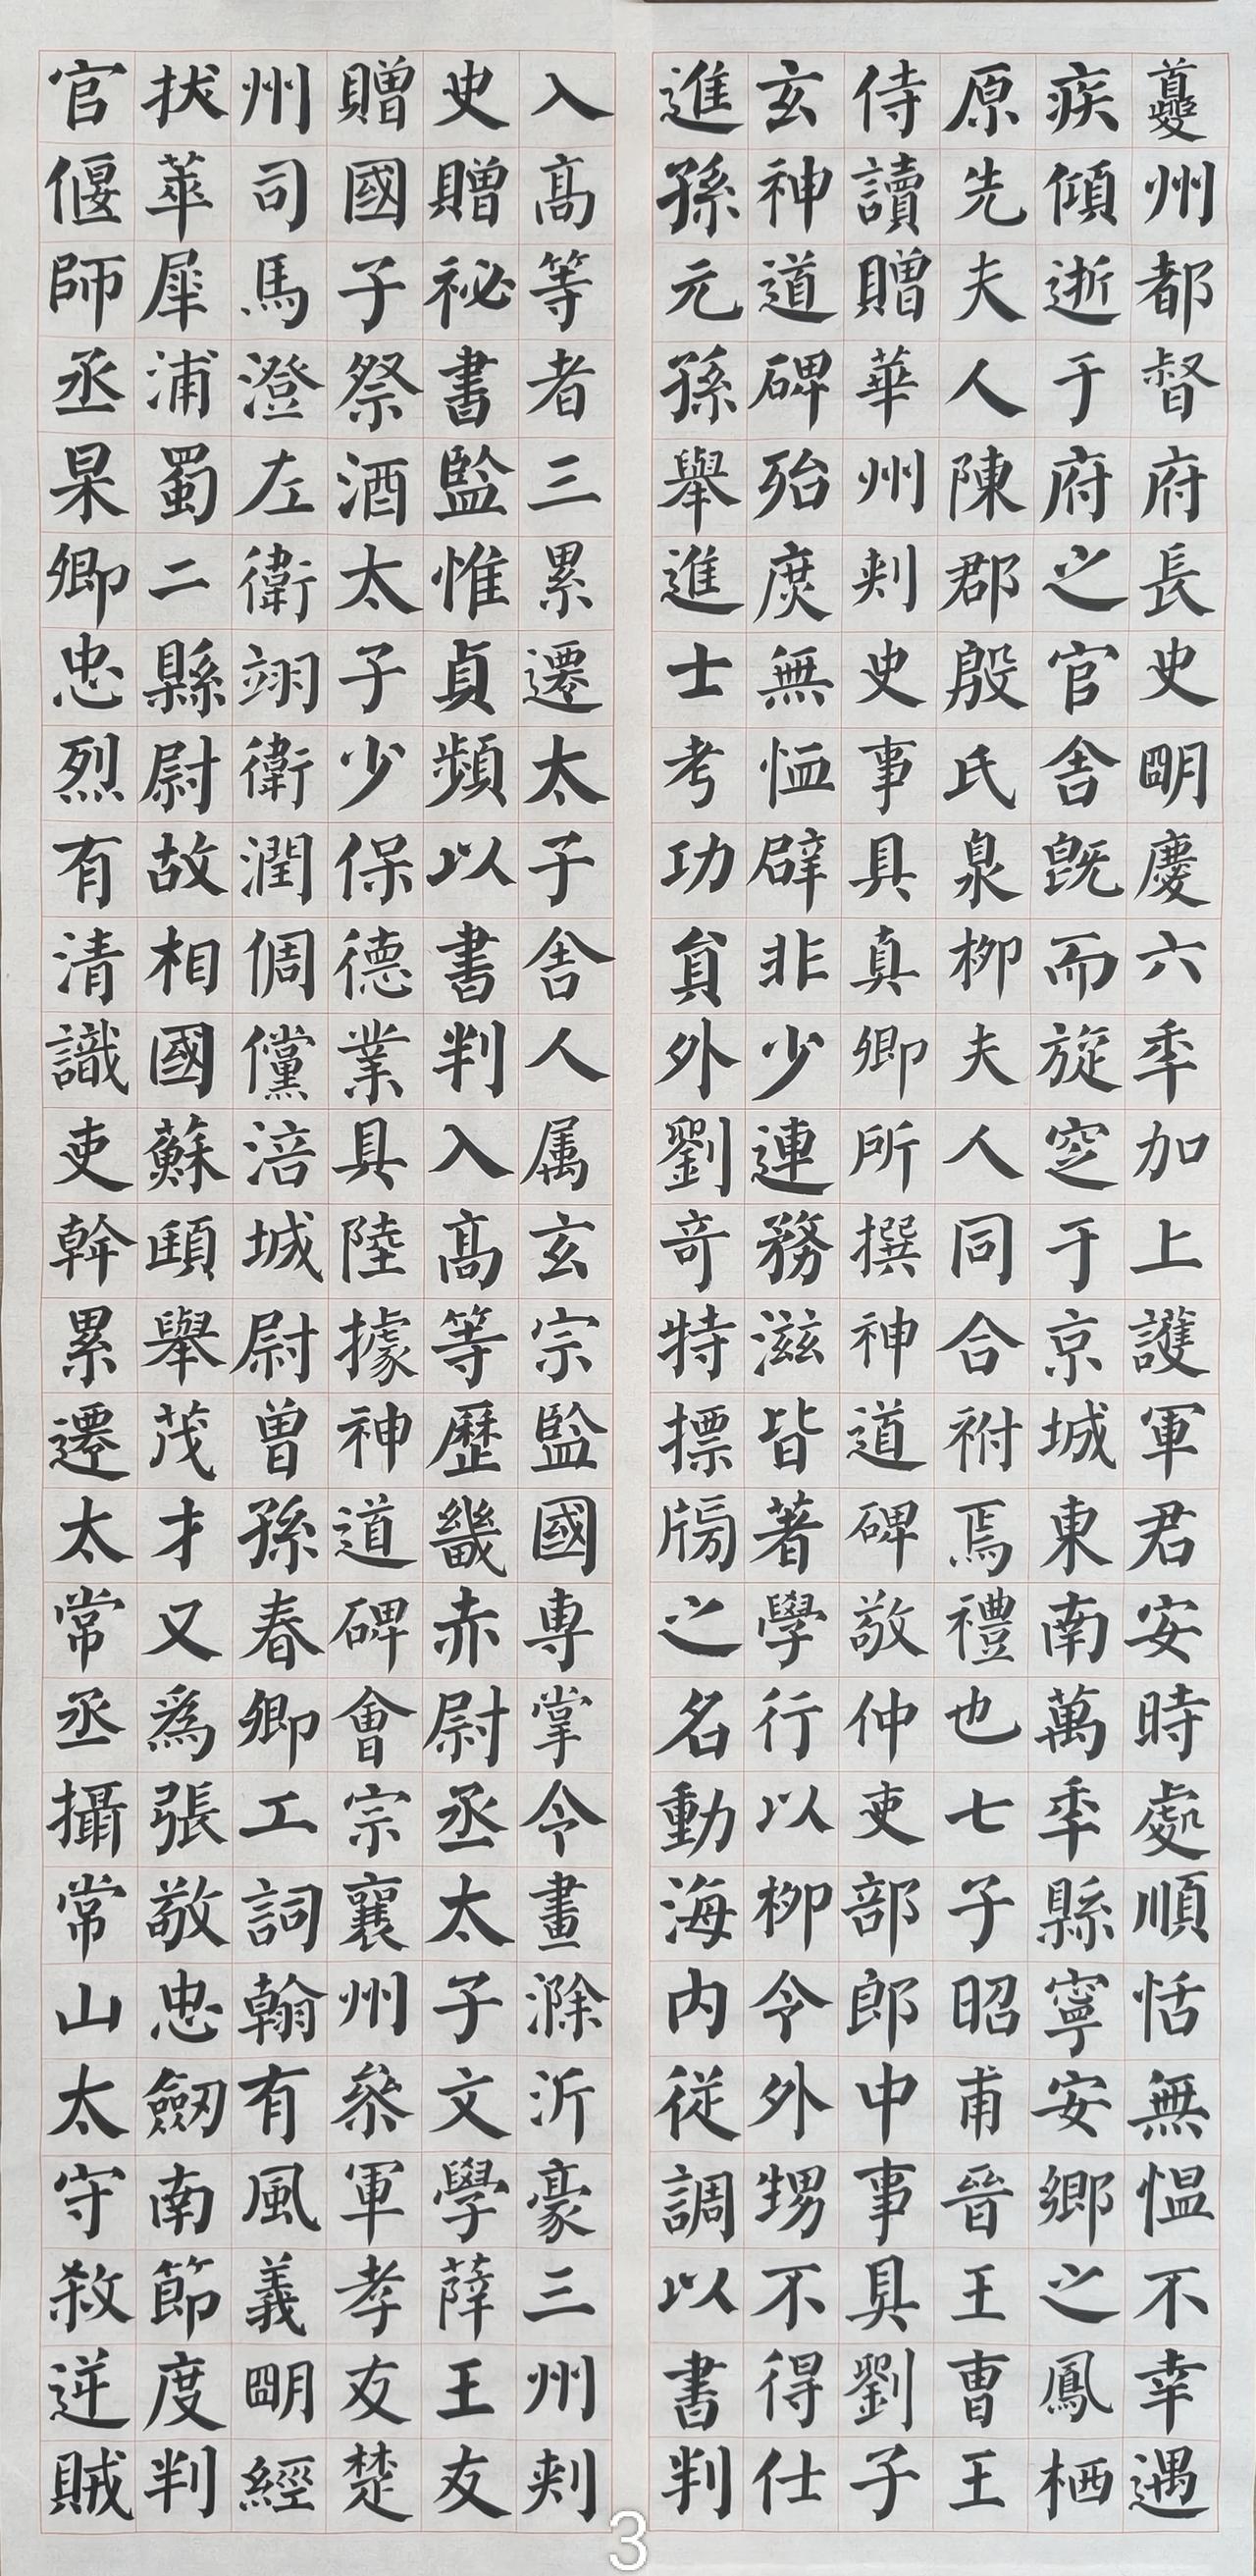 夔州都督府長史明慶六年加上護軍君安時處順恬無慍不幸遇
疾傾逝于府之官舍既而旋窆于京城東南萬年縣寧安鄉之鳳栖
原先夫人陳郡殷氏泉柳夫人同合祔焉禮也七子昭甫晉王曹王
侍讀贈華州刺史事具真卿所撰神道碑敬仲吏部郎中事具劉子
玄神道碑殆庶無恤辟非少連務滋皆著學行以柳令外甥不得仕
進孫元孫舉進士考功員外劉奇特摽牓之名動海内從調以書判
入高等者三累遷太子舍人属玄宗監國專掌令畫滁沂豪三州刺
史贈祕書監惟貞頻以書判入高等歷畿赤尉丞太子文學薛王友
贈國子祭酒太子少保德業具陸據神道碑會宗襄州參軍孝友楚
州司馬澄左衛翊衛潤倜儻涪城尉曾孫春卿工詞翰有風義明經
拔萃犀浦蜀二縣尉故相國蘇頲舉茂才又為張敬忠劒南節度判
官偃師丞杲卿忠烈有清識吏幹累遷太常丞攝常山太守殺逆賊
3